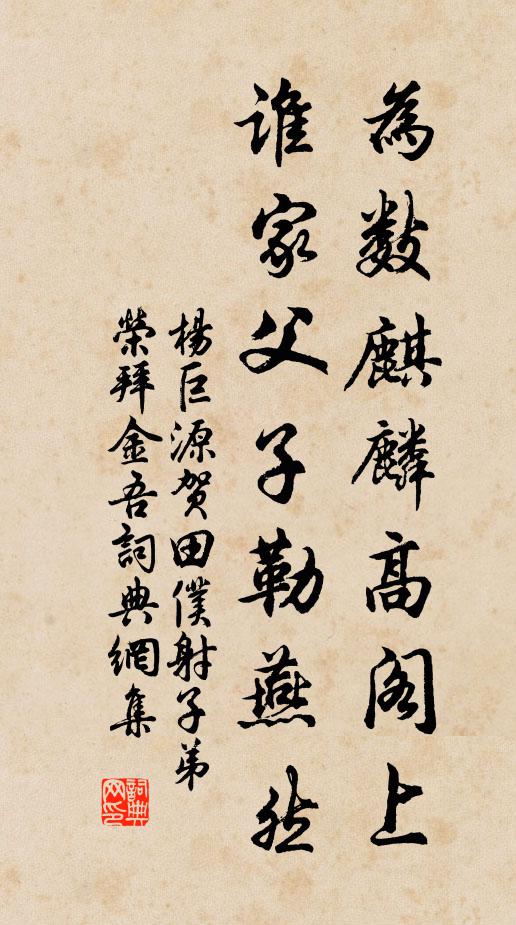 為數麒麟高閣上
誰家父子勒燕然
楊巨源賀田僕射子弟
榮拜金吾詞典網集
詞典網印